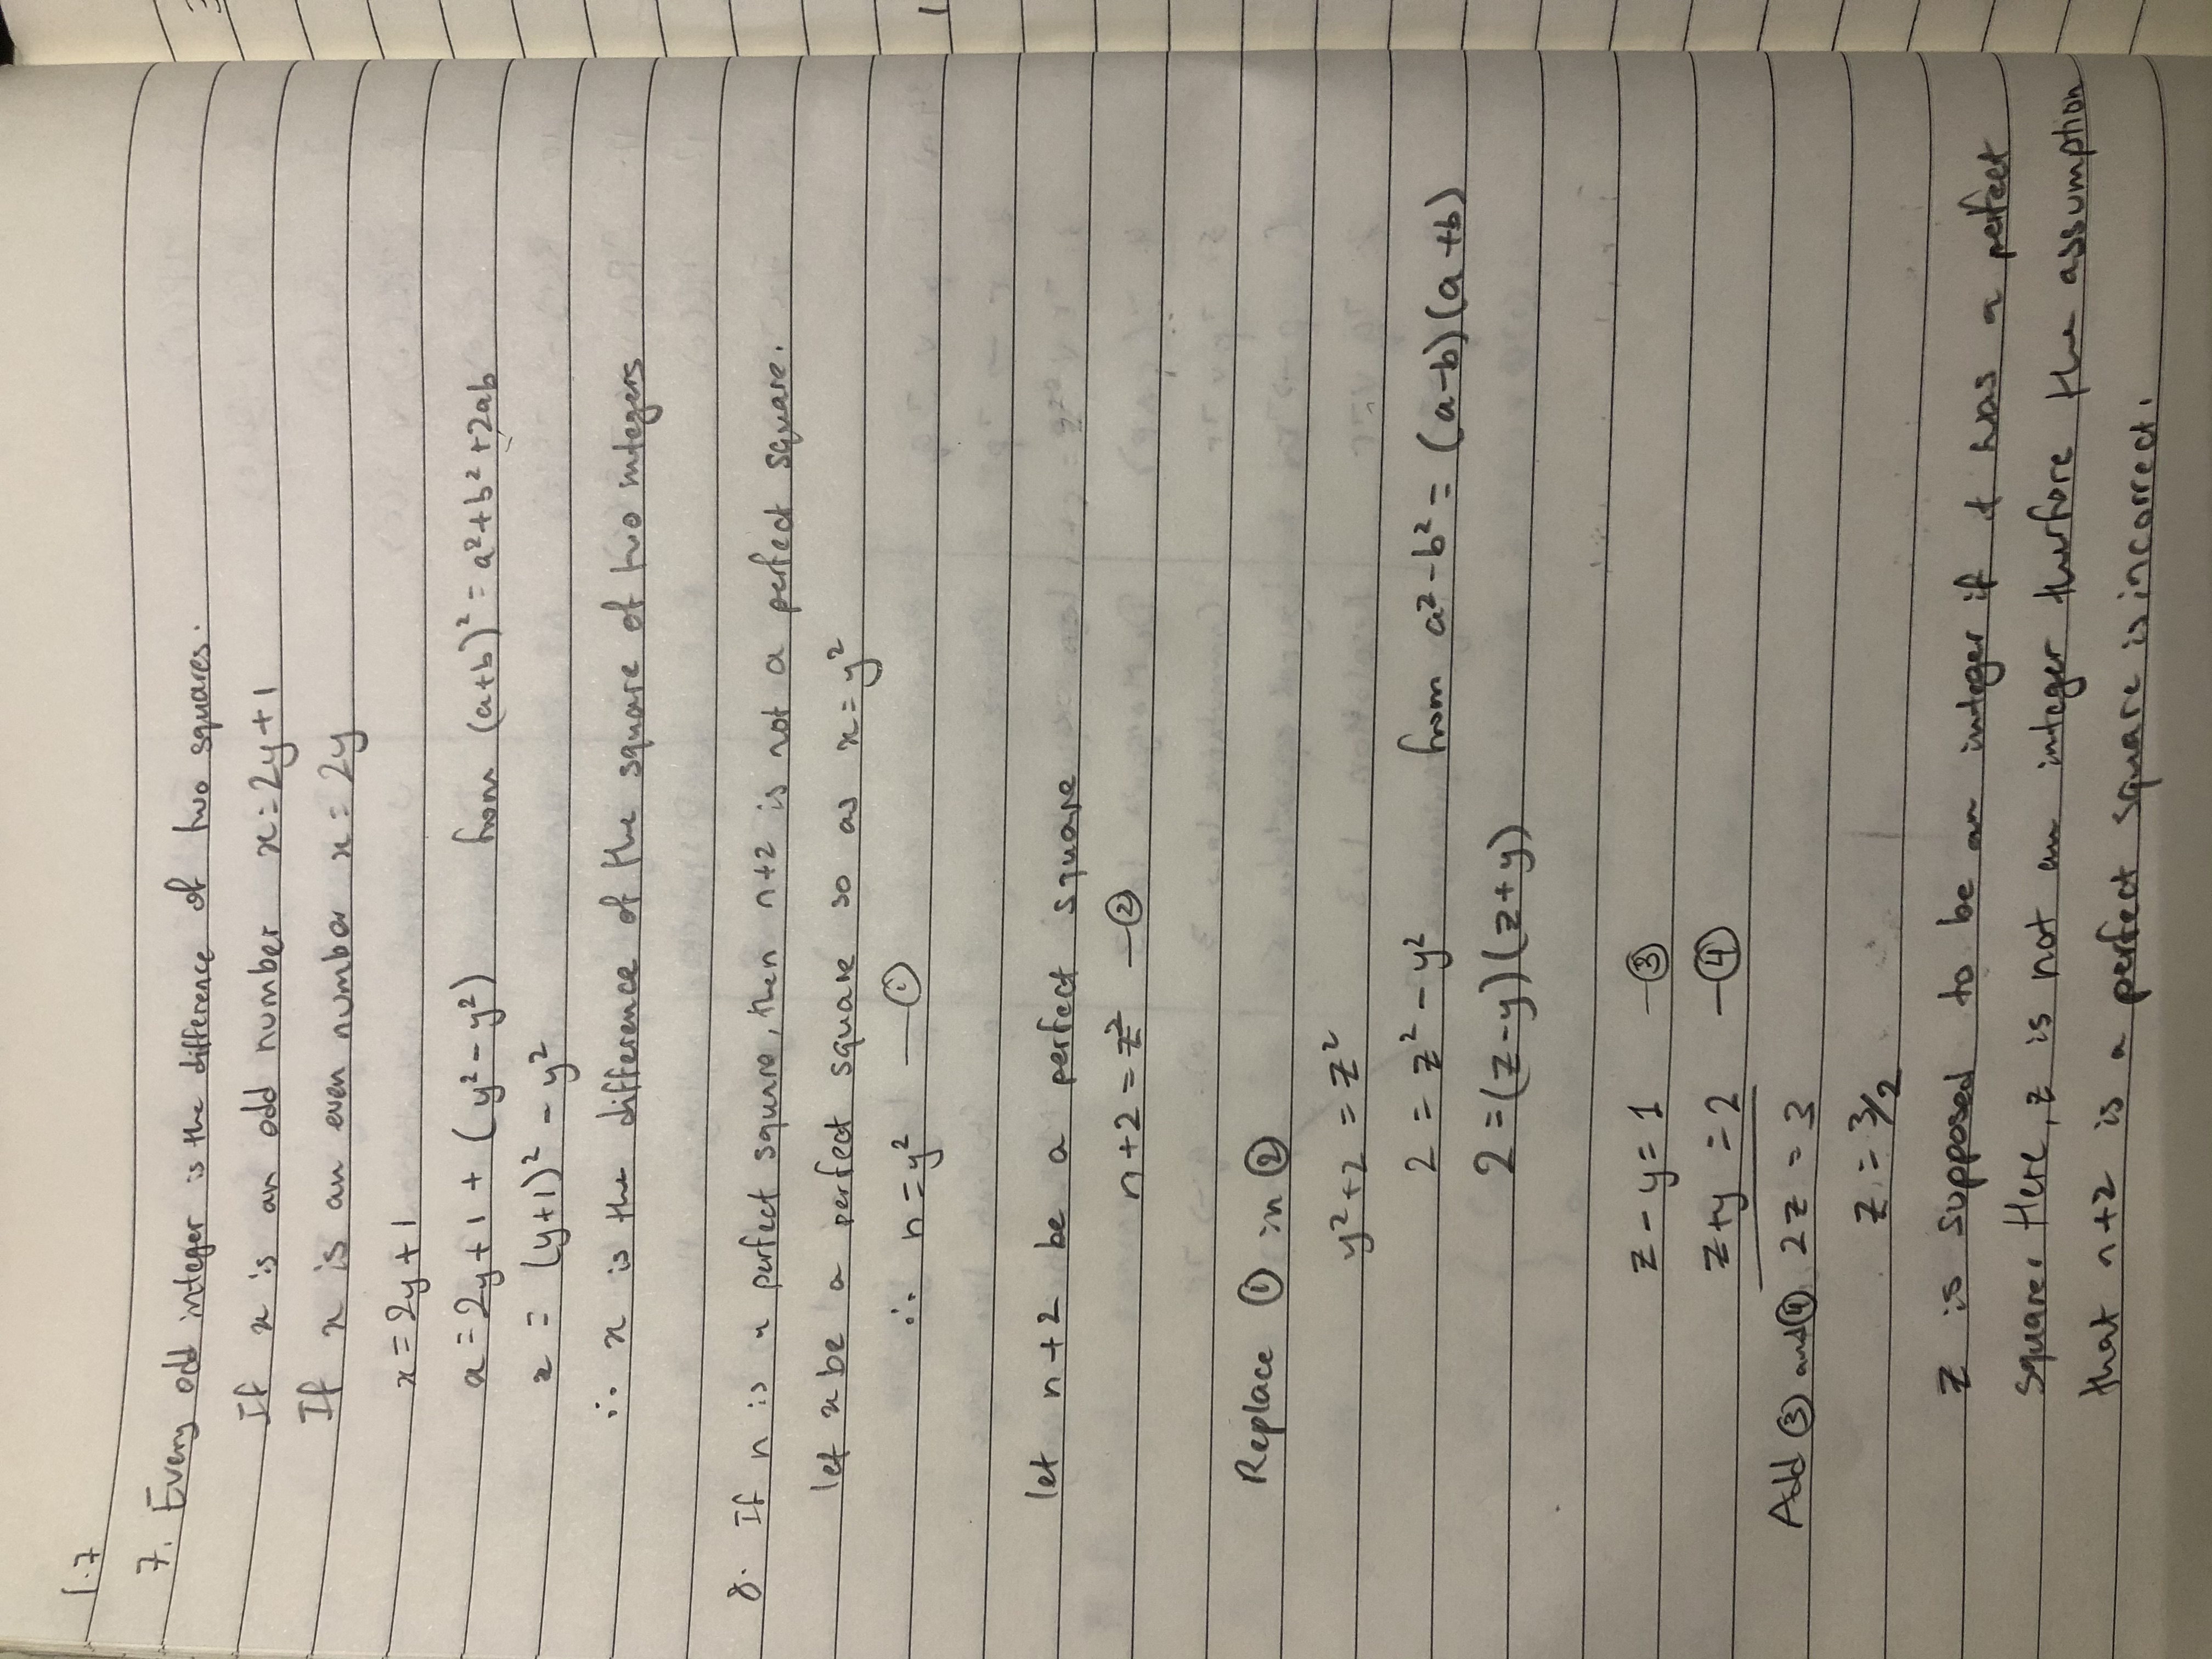 1.7
7. Every odd integer is the difference of two squares.
If x is an odd number x = 2y + 1
If x is an even number x = 2y
x = 2y + 1
x = 2y + 1 + (y² - y²) from (a+b)² = a² + b² + 2ab
x = (y+1)² - y²
∴ x is the difference of the square of two integers
8. If n is a perfect square, then n+2 is not a perfect square.
let x be a perfect square so as x = y²
∴ n = y² — ①
let n+2 be a perfect square
n+2 = z² — ②
Replace ① in ②
y² + 2 = z²
2 = z² - y² from a² - b² = (a-b)(a+b)
2 = (z-y)(z+y)
z - y = 1 — ③
z + y = 2 — ④
Add ③ and ④ 2z = 3
z = 3/2
z is supposed to be an integer if it was a perfect
square. Here, z is not an integer therfore the assumption
that n+2 is a perfect square is incorrect.